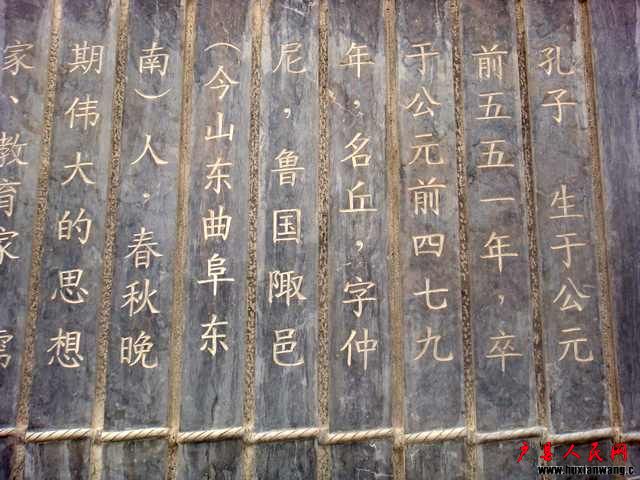 孔子 生于公元
前五五一年，卒
于公元前四七九
年，名丘，字仲
尼，鲁国陬邑
（今山东曲阜东
南）人，春秋晚
期伟大的思想
家、教育家
户县人民网
www.huxianwang.c